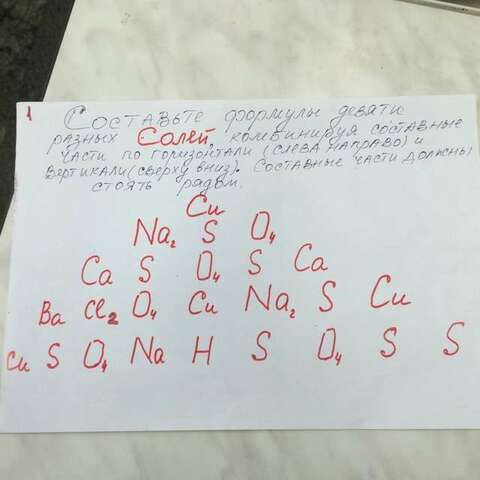 1
Составьте формулы девяти
разных Солей, комбинируя составные
части по горизонтали (слева направо) и
вертикали (сверху вниз). Составные части должны
стоять рядом.
Cu
Na₂ S O₄
Ca S O₄ S Ca
Ba Cl₂ O₄ Cu Na₂ S Cu
Cu S O₄ Na H S O₄ S S